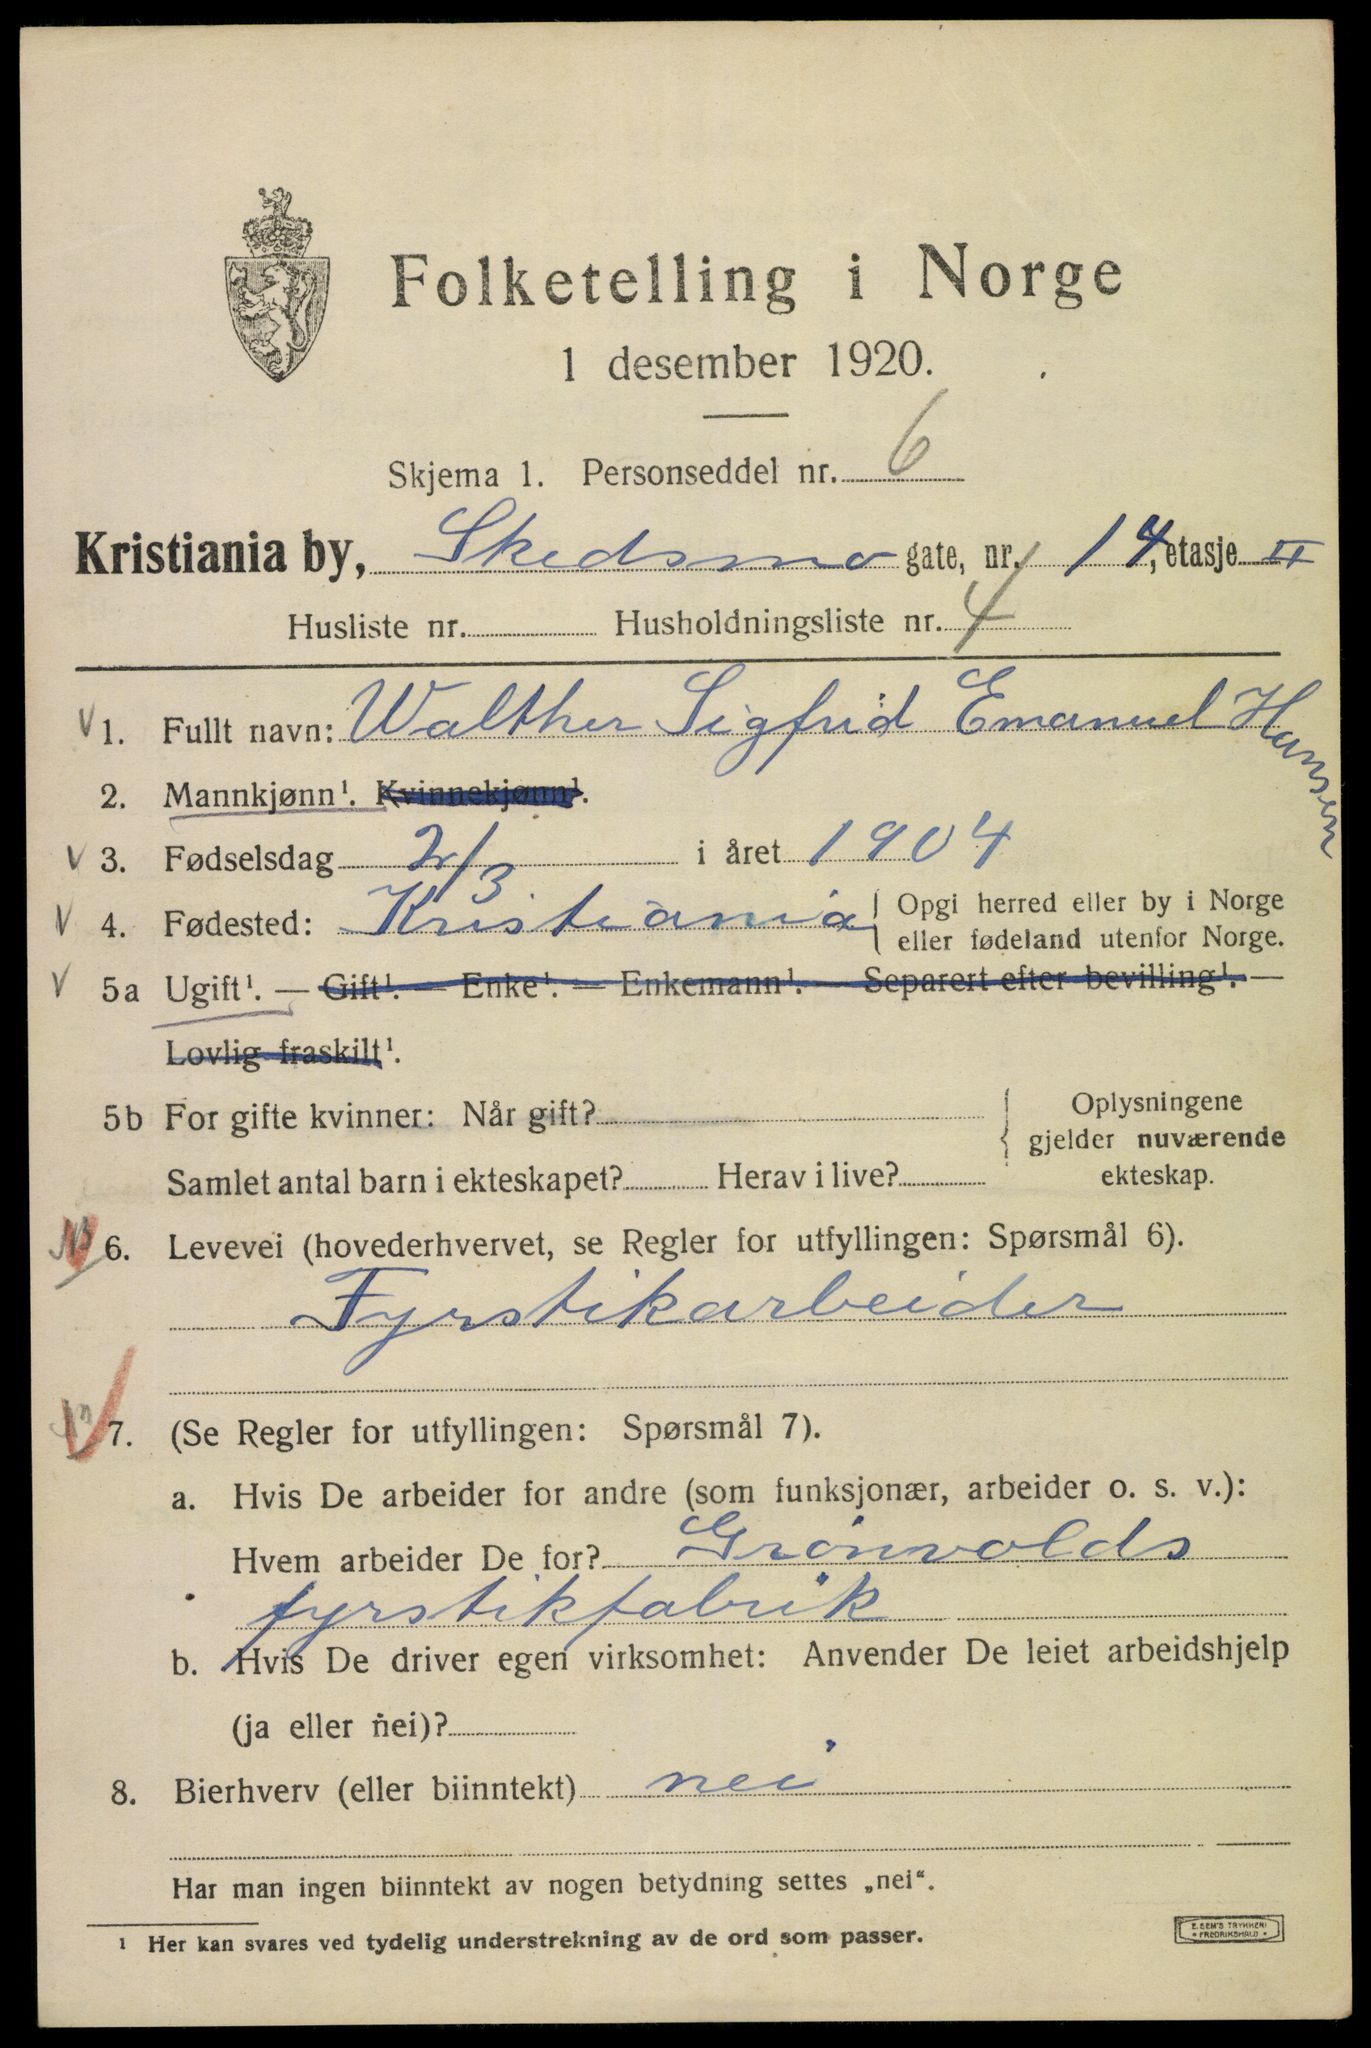 Folketelling i Norge
1 desember 1920.
Skjema 1. Personseddel nr. 6
Kristiania by, Skedsmo gate, nr. 14, etasje II
Husliste nr. Husholdningsliste nr. 4
V 1. Fullt navn: Walther Sigfrid Emanuel Hansen
2. Mannkjønn¹. Kvinnekjønn¹.
V 3. Fødselsdag 2/3 i året 1904
V 4. Fødested: Kristiania { Opgi herred eller by i Norge
eller fødeland utenfor Norge.
V 5a Ugift¹. — Gift¹. — Enke¹. — Enkemann¹. — Separert efter bevilling¹. —
Lovlig fraskilt¹.
5b For gifte kvinner: Når gift? { Oplysningene
gjelder nuværende
Samlet antal barn i ekteskapet? Herav i live? ekteskap.
6. Levevei (hovederhvervet, se Regler for utfyllingen: Spørsmål 6).
Fyrstikarbeider
7. (Se Regler for utfyllingen: Spørsmål 7).
a. Hvis De arbeider for andre (som funksjonær, arbeider o. s. v.):
Hvem arbeider De for? Grönvolds
fyrstikfabrik
b. Hvis De driver egen virksomhet: Anvender De leiet arbeidshjelp
(ja eller nei)?
8. Bierhverv (eller biinntekt) nei
Har man ingen biinntekt av nogen betydning settes „nei“.
¹ Her kan svares ved tydelig understrekning av de ord som passer.
E. SEM'S TRYKKERI
• FREDRIKSHALD •